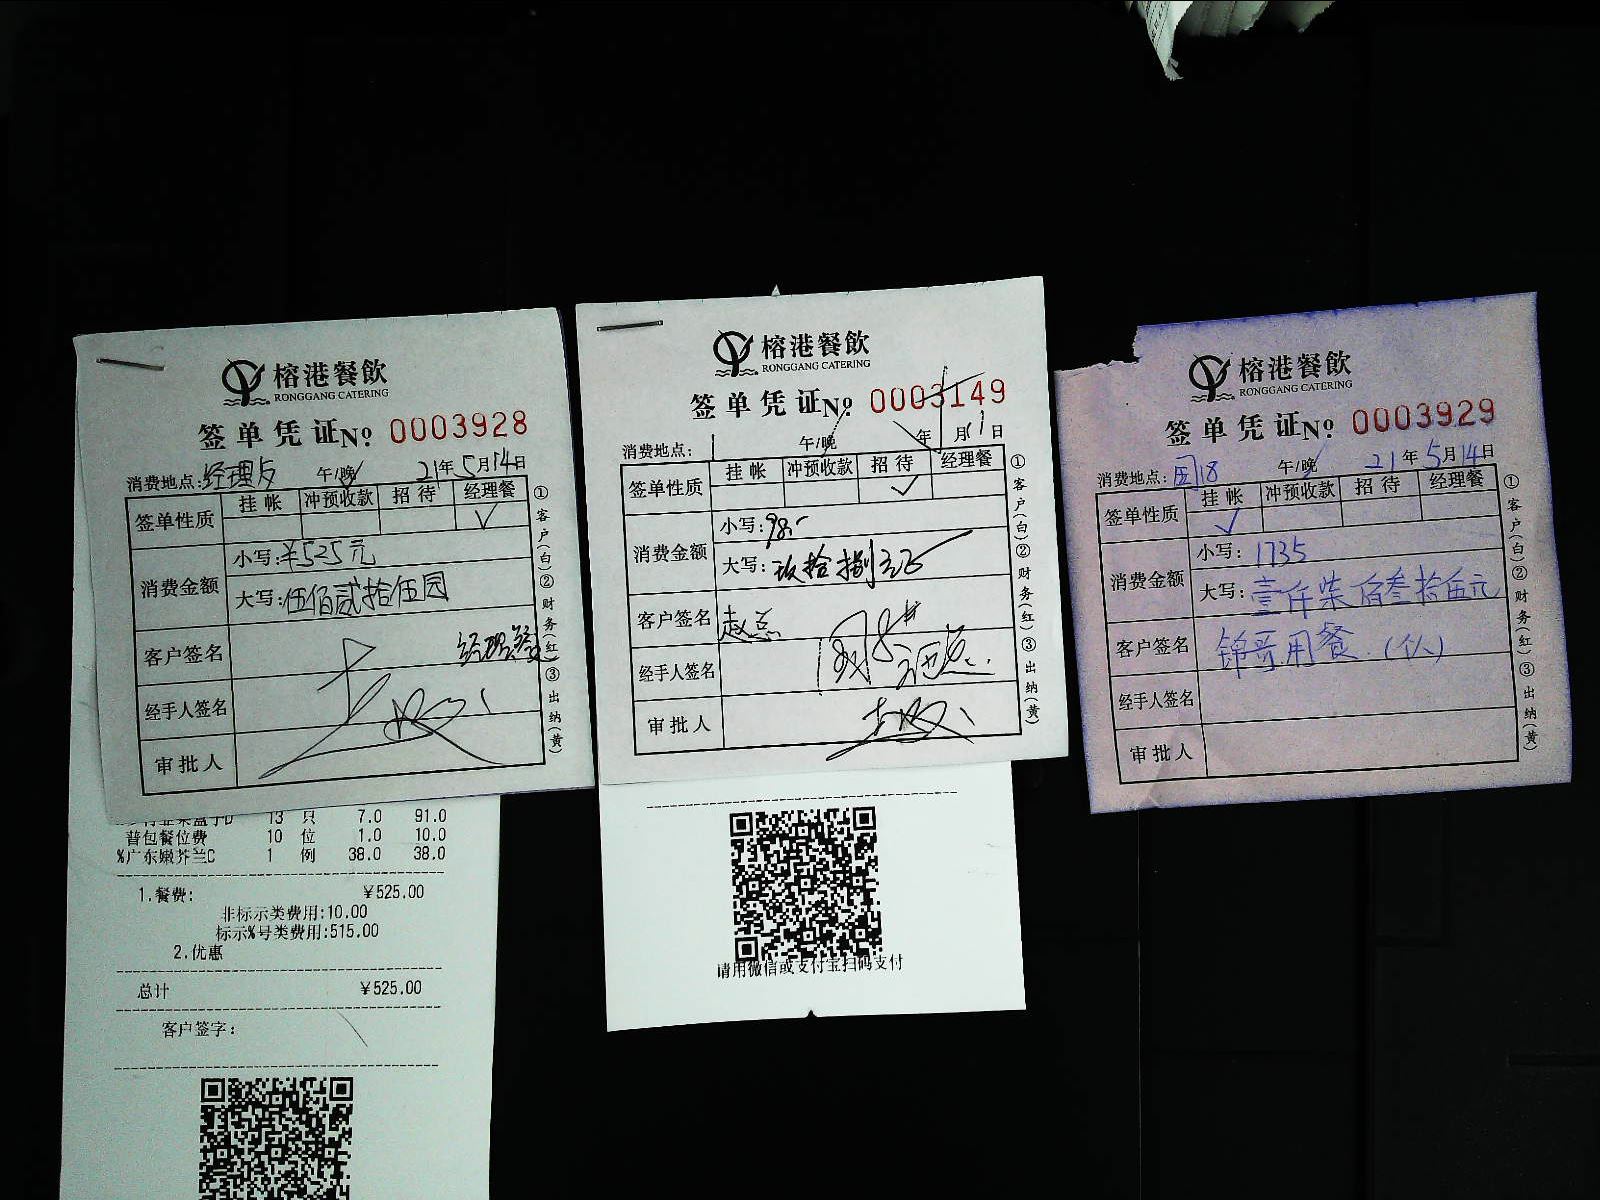 榕港餐飲
RONGGANG CATERING
签单凭证 Nº 0003928
消费地点: 经理 午/晚 21年5月14日
签单性质 挂帐 冲预收款 招待 经理餐
✓
消费金额
小写: ¥525元
大写: 伍佰贰拾伍园
客户签名 经理餐
经手人签名
审批人
①客户(白)②财务(红)③出纳(黄)
13 只 7.0 91.0
普包餐位费 10 位 1.0 10.0
%广东嫩芥兰C 1 例 38.0 38.0
1.餐费: ¥525.00
非标示类费用:10.00
标示%号类费用:515.00
2.优惠
总计 ¥525.00
客户签字:
榕港餐飲
RONGGANG CATERING
签单凭证 Nº 0003149
消费地点: 午/晚 年 月 11日
签单性质 挂帐 冲预收款 招待 经理餐
✓
消费金额
小写: 98.-
大写: 玖拾捌元正
客户签名 赵总
经手人签名
审批人
①客户(白)②财务(红)③出纳(黄)
请用微信或支付宝扫码支付
榕港餐飲
RONGGANG CATERING
签单凭证 Nº 0003929
消费地点: 18 午/晚 21年5月14日
签单性质 挂帐 冲预收款 招待 经理餐
✓
消费金额
小写: 1735
大写: 壹仟柒佰叁拾伍元
客户签名 锦哥用餐.(仏)
经手人签名
审批人
①客户(白)②财务(红)③出纳(黄)